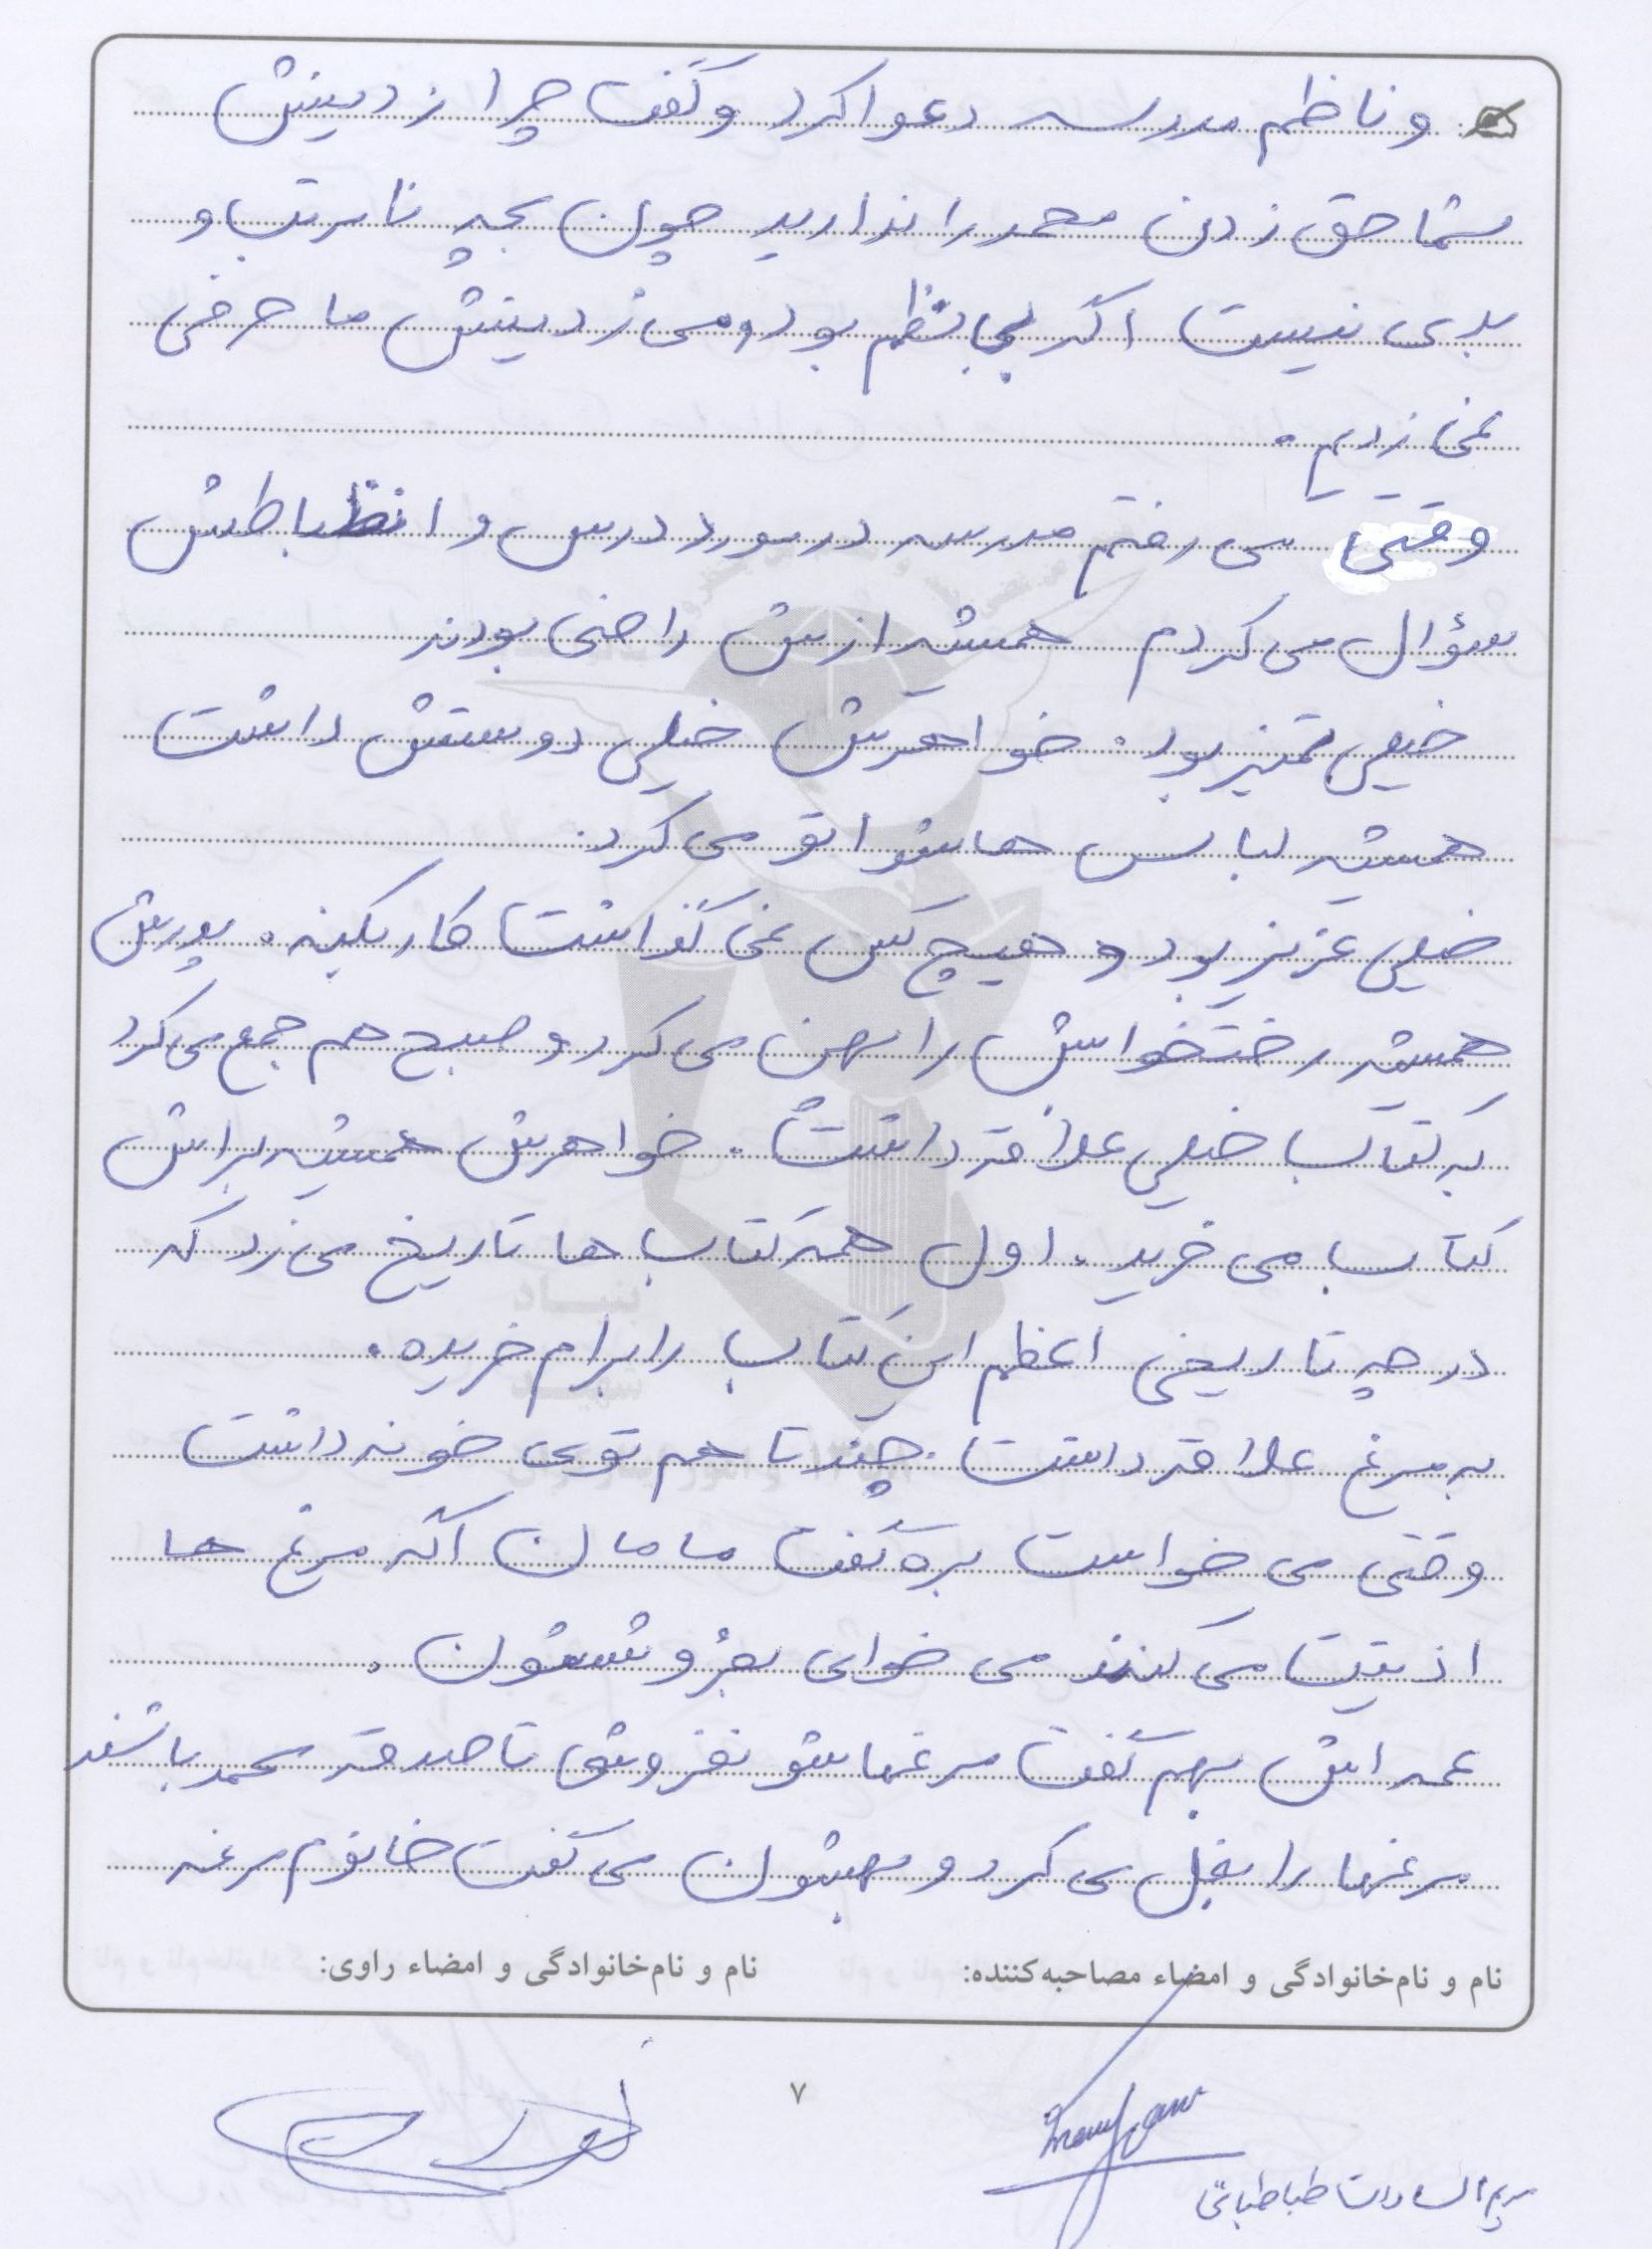 و ناظم مدرسه دعوا کرد و گفت چرا زدینش
شما حق زدن محمد را ندارید چون بچه نامرتب و
بدی نیست اگر بی نظم بود و می زدینش ما حرفی
نمی زدیم.
وقتی می رفتم مدرسه در مورد درس و انظباطش
سؤال می کردم همیشه ازش راضی بودند
خیلی تمیز بود. خواهرش خیلی دوستش داشت
همیشه لباس هاشو اتو می کرد.
خیلی عزیز بود و هیچ کس نمی گذاشت کار بکنه. پدرش
همیشه رختخوابش را پهن می کرد و صبح هم جمع می کرد
به کتاب خیلی علاقه داشت. خواهرش همیشه براش
کتاب می خرید. اول همه کتاب ها تاریخ می زد که
در چه تاریخی اعظم این کتاب را برام خریده.
به مرغ علاقه داشت. چند تا هم توی خونه داشت
وقتی می خواست بره گفت مامان اگه مرغ ها
اذیتت می کنند می خوای بفروششون.
عمه اش بهم گفت مرغهاشو نفروش تا صدقه محمد باشند
مرغها را بغل می کرد و بهشون می گفت خانوم مرغه
نام و نام‌خانوادگی و امضاء مصاحبه‌کننده: نام و نام‌خانوادگی و امضاء راوی:
۷
مریم السادات طباطبائی